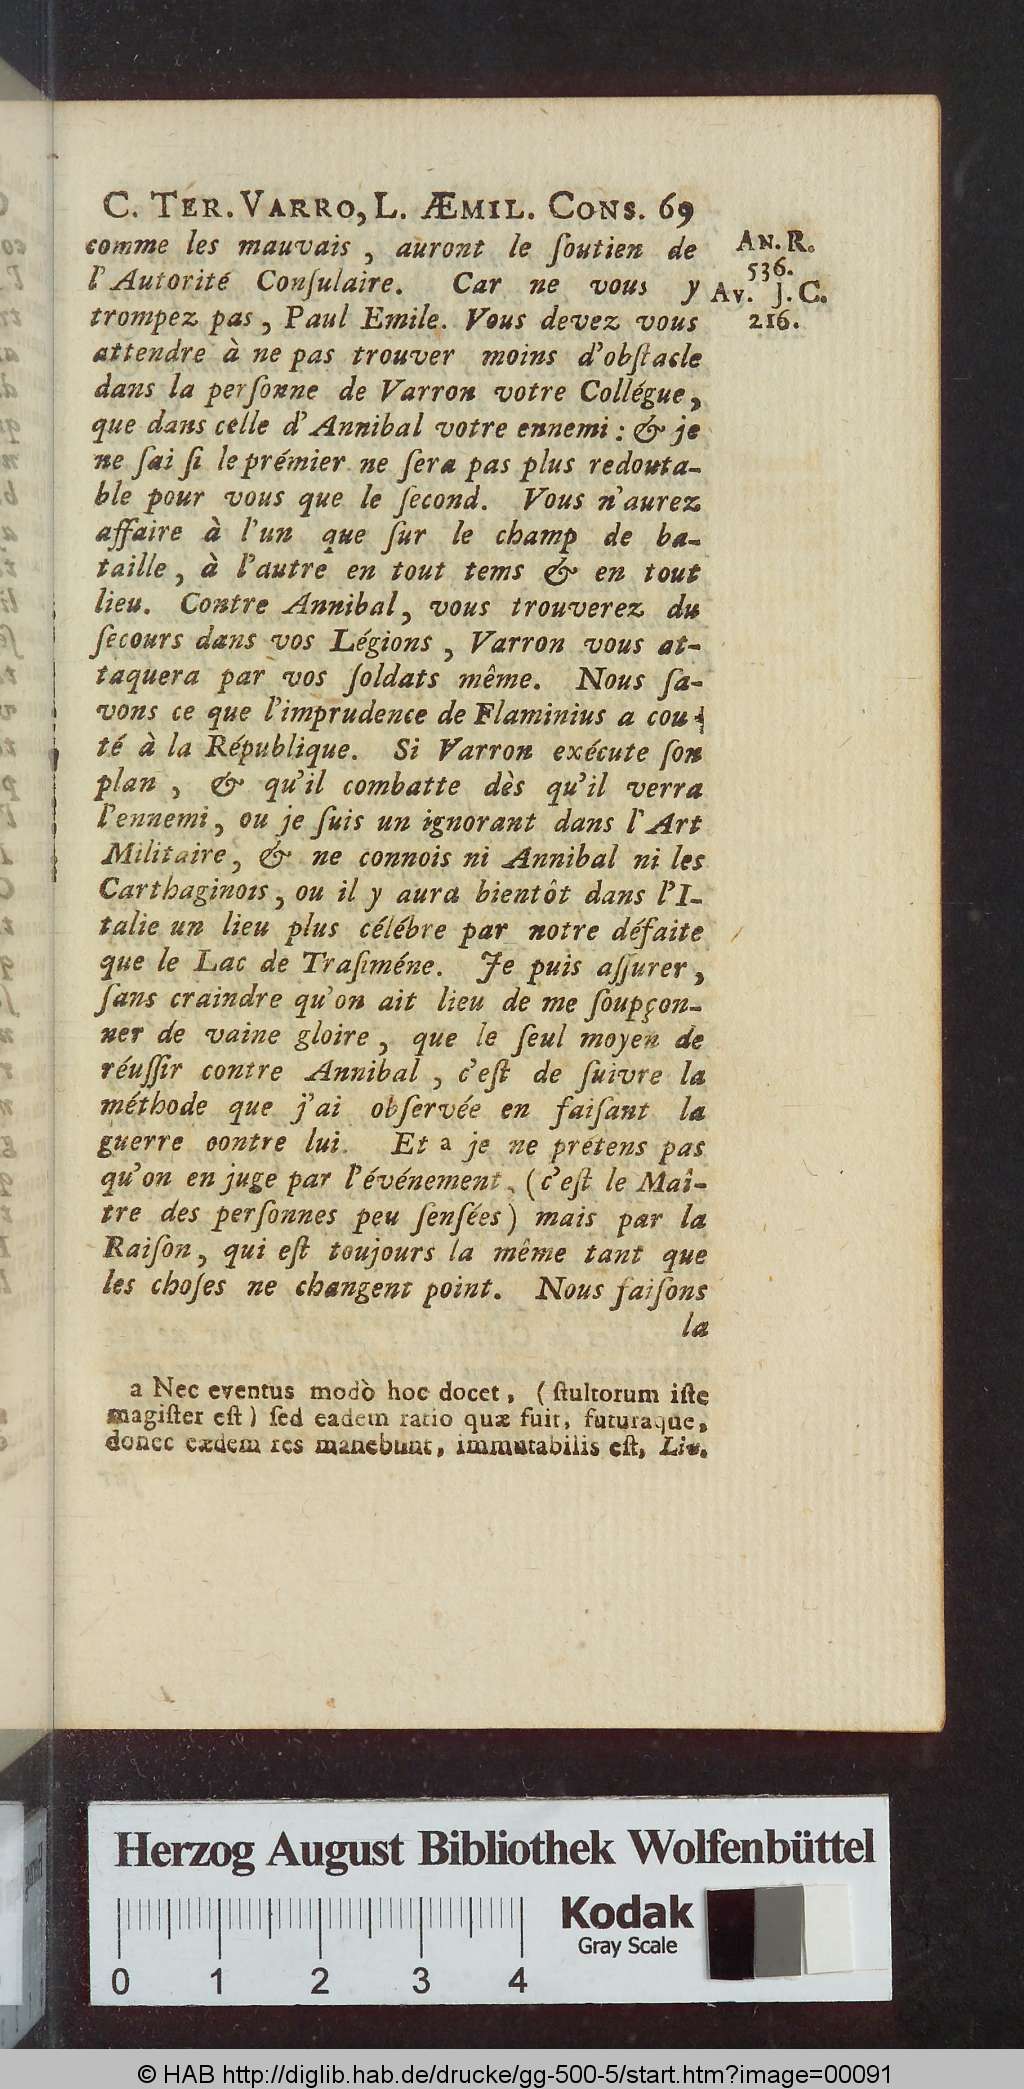 C. TER. VARRO, L. ÆMIL. CONS. 69
AN. R.
536.
AV. J. C.
216.
comme les mauvais, auront le ſoutien de
l'Autorité Conſulaire. Car ne vous y
trompez pas, Paul Emile. Vous devez vous
attendre à ne pas trouver moins d'obſtacle
dans la perſonne de Varron votre Collégue,
que dans celle d'Annibal votre ennemi: & je
ne ſai ſi le prémier ne ſera pas plus redouta-
ble pour vous que le ſecond. Vous n'aurez
affaire à l'un que ſur le champ de ba-
taille, à l'autre en tout tems & en tout
lieu. Contre Annibal, vous trouverez du
ſecours dans vos Légions, Varron vous at-
taquera par vos ſoldats même. Nous ſa-
vons ce que l'imprudence de Flaminius a cou-
té à la République. Si Varron exécute ſon
plan, & qu'il combatte dès qu'il verra
l'ennemi, ou je ſuis un ignorant dans l'Art
Militaire, & ne connois ni Annibal ni les
Carthaginois, ou il y aura bientôt dans l'I-
talie un lieu plus célébre par notre défaite
que le Lac de Traſiméne. Je puis aſſurer,
ſans craindre qu'on ait lieu de me ſoupçon-
ner de vaine gloire, que le ſeul moyen de
réuſſir contre Annibal, c'eſt de ſuivre la
méthode que j'ai obſervée en faiſant la
guerre contre lui. Et a je ne prétens pas
qu'on en juge par l'événement, (c'eſt le Maî-
tre des perſonnes peu ſenſées) mais par la
Raiſon, qui eſt toujours la même tant que
les choſes ne changent point. Nous faiſons
la
a Nec eventus modò hoc docet, (ſtultorum iſte
magiſter eſt) ſed eadem ratio quæ fuit, futuraque,
donec eædem res manebunt, immutabilis eſt, Liv.
Herzog August Bibliothek Wolfenbüttel
Kodak
Gray Scale
0 1 2 3 4
© HAB http://diglib.hab.de/drucke/gg-500-5/start.htm?image=00091